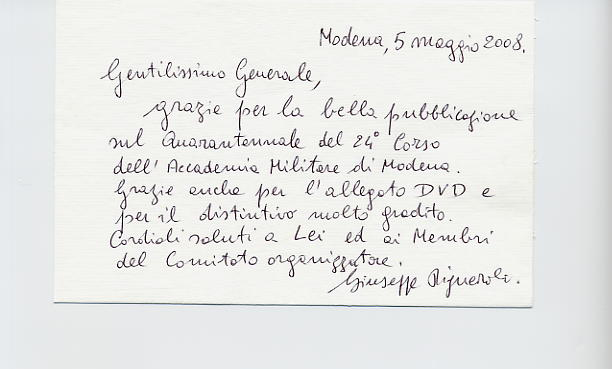 Modena, 5 maggio 2008.
Gentilissimo Generale,
grazie per la bella pubblicazione
sul Quarantennale del 24° Corso
dell'Accademia Militare di Modena.
Grazie anche per l'allegato DVD e
per il distintivo molto gradito.
Cordiali saluti a Lei ed ai Membri
del Comitato organizzatore.
Giuseppe